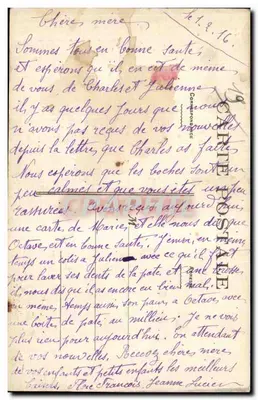 Chère mere
21.2.16
Sommes tous en bonne santé
et esperons que il en est de meme
de vous de Charles et Julienne
il y as quelques jours que nous
n'avons pas reçus de vos nouvelles
depuis la lettre que Charles as faite
Nous esperons que les boches sont un
peu calmes et que vous êtes un peu
rassurées aujourd'hui
une carte de Marie, elle nous dis que
Octave, est en bonne santé,
temps un colis a avec ce qu'il faut
pour laver ses dents de la pate et une brosse,
il nous dis que il as encore eu bien mal.
en même, temps aussi son pain, a Octave, avec
une boite, de paté, au millieu, Je ne vois
plus rien pour aujourd'hui. En attendant
de vos nouvelles, Recevez chère mere
de vos enfants et petits enfants les meilleurs
baisers François, Jeanne Lucien
CARTE POSTALE
Correspondance